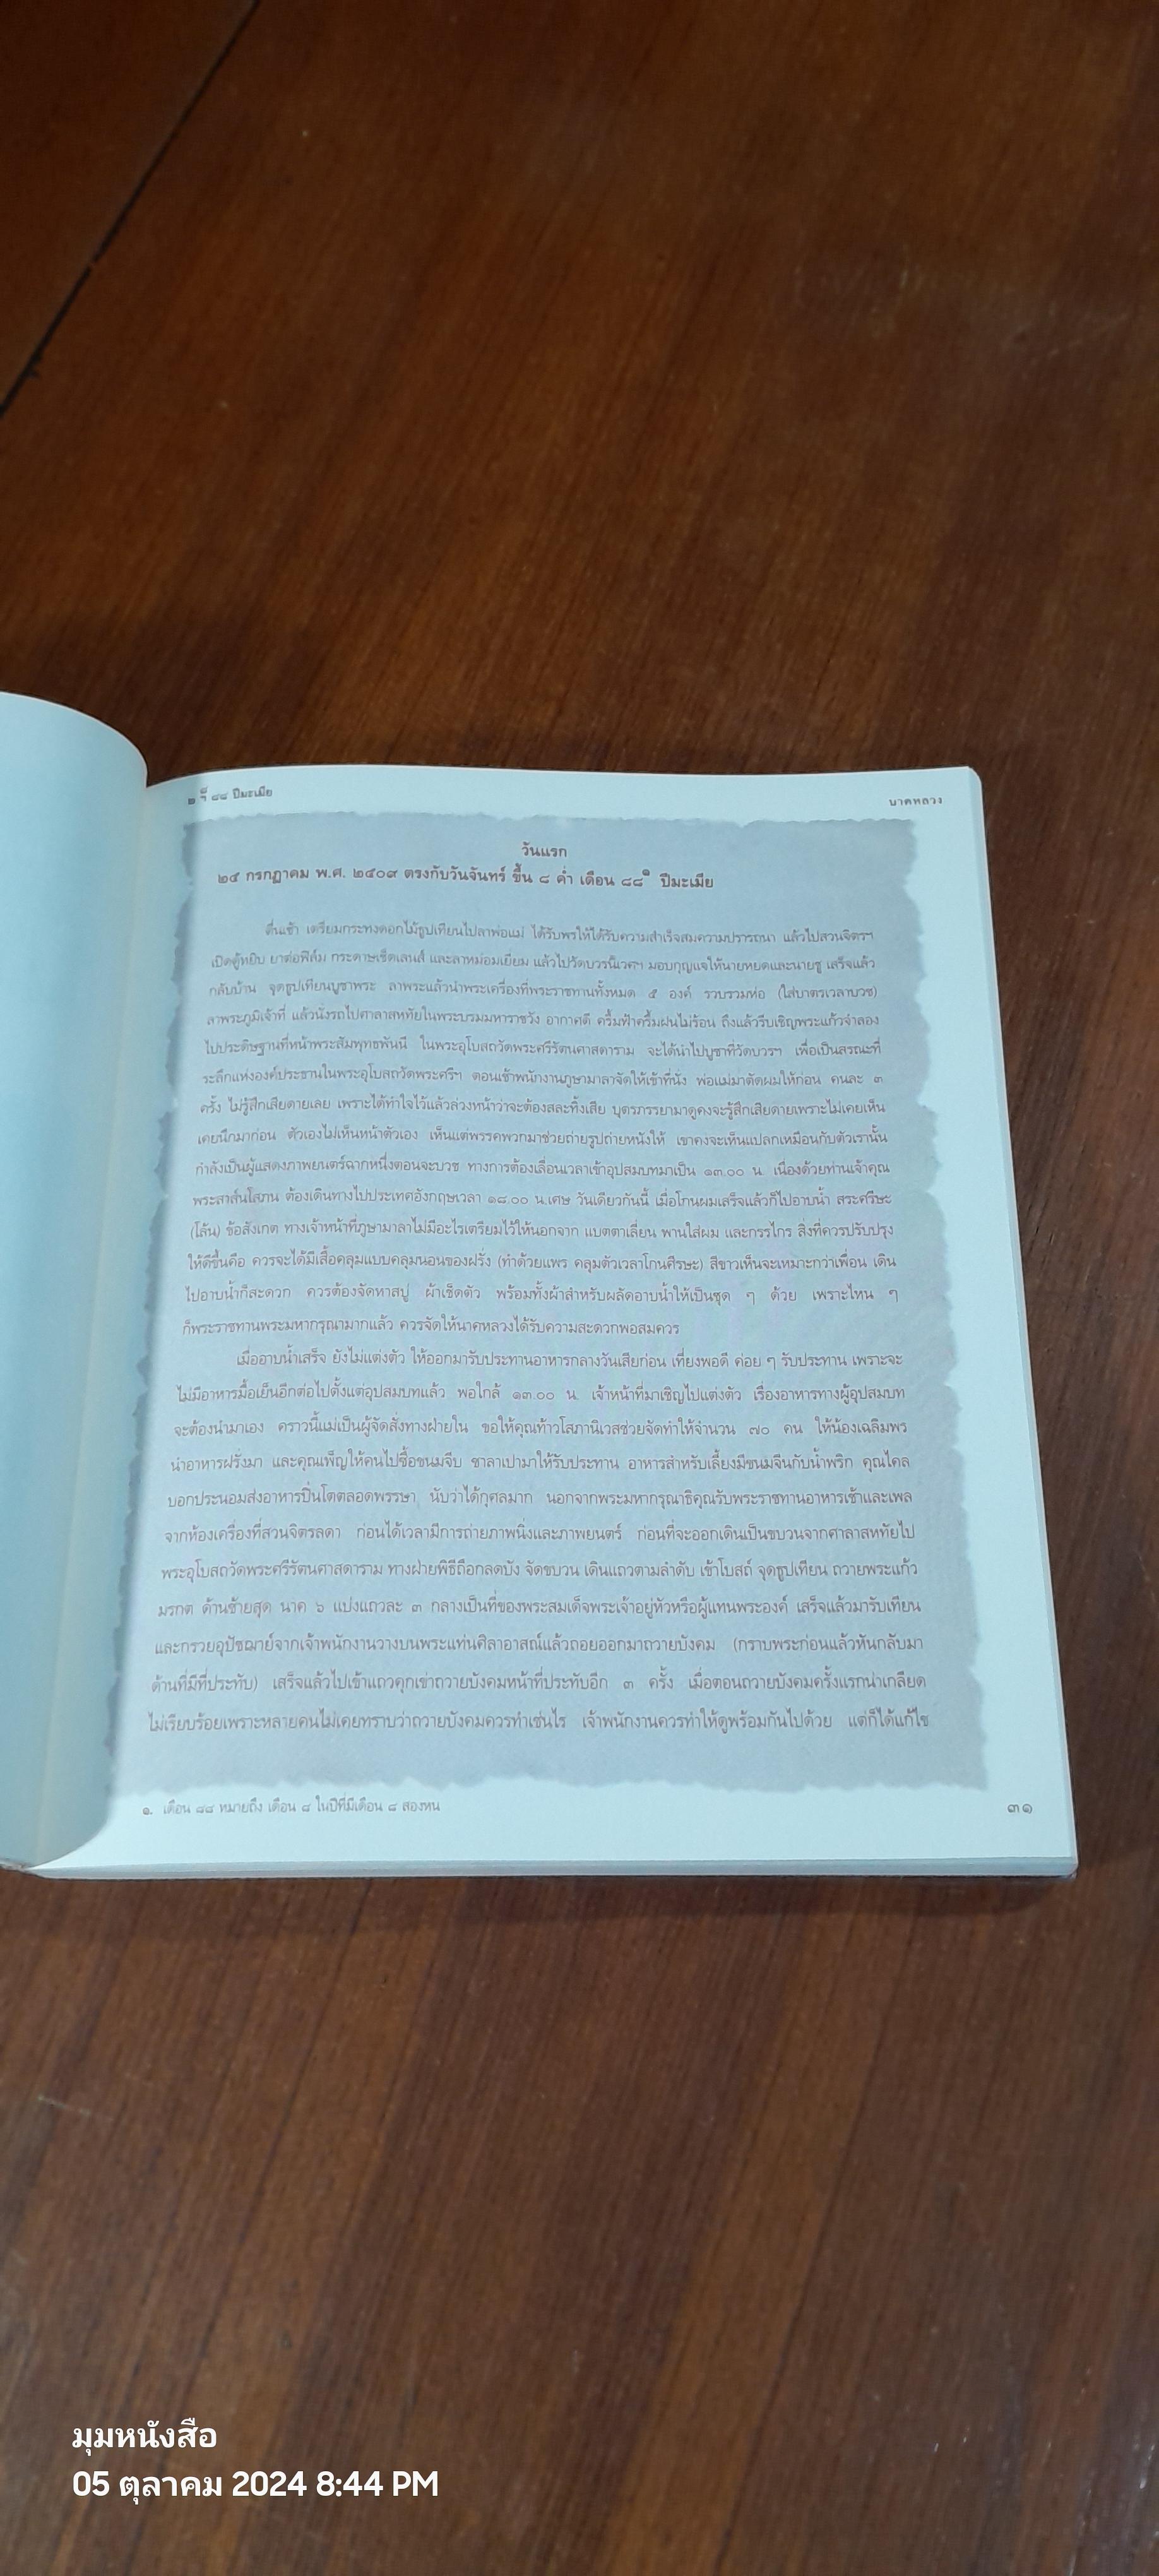 ๒ ฯ็ ๘๘ ปีมะเมีย
นาคหลวง
วันแรก
๒๕ กรกฎาคม พ.ศ. ๒๕๐๙ ตรงกับวันจันทร์ ขึ้น ๘ ค่ำ เดือน ๘๘๑ ปีมะเมีย
ตื่นเช้า เตรียมกระทงดอกไม้ธูปเทียนไปลาพ่อแม่ ได้รับพรให้ได้รับความสำเร็จสมความปรารถนา แล้วไปสวนจิตรฯ
เปิดตู้หยิบ ยาต่อฟิล์ม กระดาษเช็ดเลนส์ และลาหม่อมเยี่ยม แล้วไปวัดบวรนิเวศฯ มอบกุญแจให้นายหยดและนายชู เสร็จแล้ว
กลับบ้าน จุดธูปเทียนบูชาพระ ลาพระแล้วนำพระเครื่องที่พระราชทานทั้งหมด ๕ องค์ รวบรวมห่อ (ใส่บาตรเวลาบวช)
ลาพระภูมิเจ้าที่ แล้วนั่งรถไปศาลาสหทัยในพระบรมมหาราชวัง อากาศดี ครึ้มฟ้าครึ้มฝนไม่ร้อน ถึงแล้วรีบเชิญพระแก้วจำลอง
ไปประดิษฐานที่หน้าพระสัมพุทธพันนี ในพระอุโบสถวัดพระศรีรัตนศาสดาราม จะได้นำไปบูชาที่วัดบวรฯ เพื่อเป็นสรณะที่
ระลึกแห่งองค์ประธานในพระอุโบสถวัดพระศรีฯ ตอนเช้าพนักงานภูษามาลาจัดให้เข้าที่นั่ง พ่อแม่มาตัดผมให้ก่อน คนละ ๓
ครั้ง ไม่รู้สึกเสียดายเลย เพราะได้ทำใจไว้แล้วล่วงหน้าว่าจะต้องสละทิ้งเสีย บุตรภรรยามาดูคงจะรู้สึกเสียดายเพราะไม่เคยเห็น
เคยนึกมาก่อน ตัวเองไม่เห็นหน้าตัวเอง เห็นแต่พรรคพวกมาช่วยถ่ายรูปถ่ายหนังให้ เขาคงจะเห็นแปลกเหมือนกับตัวเรานั้น
กำลังเป็นผู้แสดงภาพยนตร์ฉากหนึ่งตอนจะบวช ทางการต้องเลื่อนเวลาเข้าอุปสมบทมาเป็น ๑๓.๐๐ น. เนื่องด้วยท่านเจ้าคุณ
พระสาส์นโสภณ ต้องเดินทางไปประเทศอังกฤษเวลา ๑๘.๐๐ น.เศษ วันเดียวกันนี้ เมื่อโกนผมเสร็จแล้วก็ไปอาบน้ำ สระศรีษะ
(โล้น) ข้อสังเกต ทางเจ้าหน้าที่ภูษามาลาไม่มีอะไรเตรียมไว้ให้นอกจาก แบตตาเลี่ยน พานใส่ผม และกรรไกร สิ่งที่ควรปรับปรุง
ให้ดีขึ้นคือ ควรจะได้มีเสื้อคลุมแบบคลุมนอนของฝรั่ง (ทำด้วยแพร คลุมตัวเวลาโกนศีรษะ) สีขาวเห็นจะเหมาะกว่าเพื่อน เดิน
ไปอาบน้ำก็สะดวก ควรต้องจัดหาสบู่ ผ้าเช็ดตัว พร้อมทั้งผ้าสำหรับผลัดอาบน้ำให้เป็นชุด ๆ ด้วย เพราะไหน ๆ
ก็พระราชทานพระมหากรุณามากแล้ว ควรจัดให้นาคหลวงได้รับความสะดวกพอสมควร
เมื่ออาบน้ำเสร็จ ยังไม่แต่งตัว ให้ออกมารับประทานอาหารกลางวันเสียก่อน เที่ยงพอดี ค่อย ๆ รับประทาน เพราะจะ
ไม่มีอาหารมื้อเย็นอีกต่อไปตั้งแต่อุปสมบทแล้ว พอใกล้ ๑๓.๐๐ น. เจ้าหน้าที่มาเชิญไปแต่งตัว เรื่องอาหารทางผู้อุปสมบท
จะต้องนำมาเอง คราวนี้แม่เป็นผู้จัดสั่งทางฝ่ายใน ขอให้คุณท้าวโสภานิเวสช่วยจัดทำให้จำนวน ๗๐ คน ให้น้องเฉลิมพร
นำอาหารฝรั่งมา และคุณเพ็ญให้คนไปซื้อขนมจีบ ซาลาเปามาให้รับประทาน อาหารสำหรับเลี้ยงมีขนมจีนกับน้ำพริก คุณไคล
บอกประนอมส่งอาหารปิ่นโตตลอดพรรษา นับว่าได้กุศลมาก นอกจากพระมหากรุณาธิคุณรับพระราชทานอาหารเช้าและเพล
จากห้องเครื่องที่สวนจิตรลดา ก่อนได้เวลามีการถ่ายภาพนิ่งและภาพยนตร์ ก่อนที่จะออกเดินเป็นขบวนจากศาลาสหทัยไป
พระอุโบสถวัดพระศรีรัตนศาสดาราม ทางฝ่ายพิธีถือกลดบัง จัดขบวน เดินแถวตามลำดับ เข้าโบสถ์ จุดธูปเทียน ถวายพระแก้ว
มรกต ด้านซ้ายสุด นาค ๖ แบ่งแถวละ ๓ กลางเป็นที่ของพระสมเด็จพระเจ้าอยู่หัวหรือผู้แทนพระองค์ เสร็จแล้วมารับเทียน
และกรวยอุปัชฌาย์จากเจ้าพนักงานวางบนพระแท่นศิลาอาสณ์แล้วถอยออกมาถวายบังคม (กราบพระก่อนแล้วหันกลับมา
ด้านที่มีที่ประทับ) เสร็จแล้วไปเข้าแถวคุกเข่าถวายบังคมหน้าที่ประทับอีก ๓ ครั้ง เมื่อตอนถวายบังคมครั้งแรกน่าเกลียด
ไม่เรียบร้อยเพราะหลายคนไม่เคยทราบว่าถวายบังคมควรทำเช่นไร เจ้าพนักงานควรทำให้ดูพร้อมกันไปด้วย แต่ก็ได้แก้ไข
๑. เดือน ๘๘ หมายถึง เดือน ๘ ในปีที่มีเดือน ๘ สองหน
๓๑
มุมหนังสือ
05 ตุลาคม 2024 8:44 PM